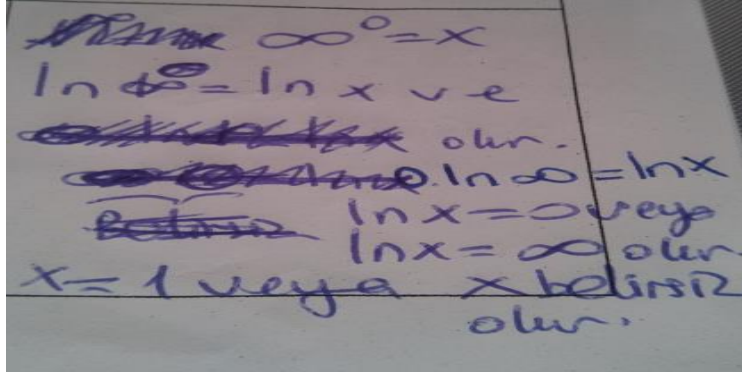 ∞⁰=x
ln ∞⁰=ln x ve
olur.
0.ln∞=lnx
lnx=0 veya
lnx=∞ olur.
x=1 veya x belirsiz
olur.